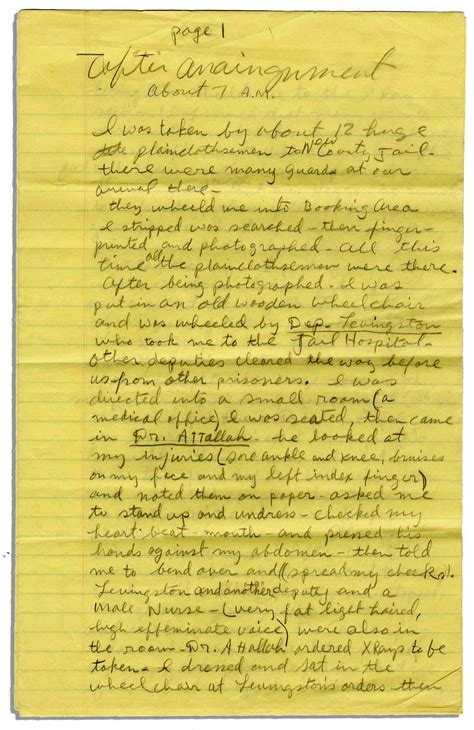 page 1
After Arraingnment
about 7 A.M.
I was taken by about 12 huge
plainclothsemen to New County Jail.
there were many guards at our
arrival there.
they wheeld me into Booking Area
I stripped was searched - then finger-
printed and photographed - all this
time all the plainclothsemen were there.
after being photographed. I was
put in an old wooden wheelchair
and was wheeled by Dep. Levingston
who took me to the Jail Hospital.
other deputies cleared the way before
us from other prisoners. I was
directed into a small room (a
medical office) I was seated, then came
in Dr. ATTallah - he looked at
my injuries (sore ankle and knee, bruises
on my face and my left index finger)
and noted them on paper - asked me
to stand up and undress - checked my
heart beat - mouth - and pressed his
hands against my abdomen - then told
me to bend over and (spread my cheeks).
Levingston and another deputy and a
Male Nurse - (very fat light haired,
high effeminate voice) were also in
the room - Dr. A Hallah ordered XRays to be
taken - I dressed and sat in the
wheelchair at Levingston's orders then